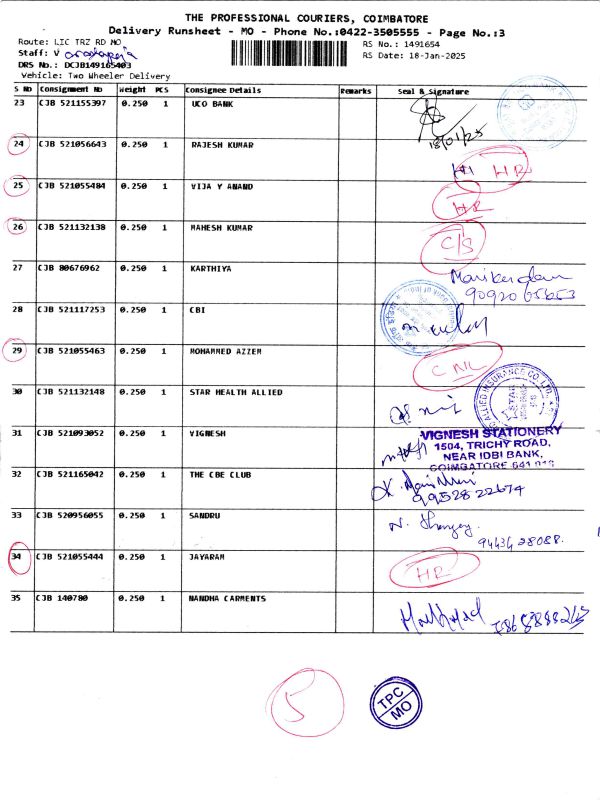 THE PROFESSIONAL COURIERS, COIMBATORE
Delivery Runsheet - MO - Phone No.:0422-3505555 - Page No.:3
Route: LIC TRZ RD MO
RS No.: 1491654
Staff: V
RS Date: 18-Jan-2025
DRS No.: DCJB149165403
Vehicle: Two Wheeler Delivery
S No Consignment No Weight PCS Consignee Details Remarks Seal & Signature
23 CJB 521155397 0.250 1 UCO BANK
18/01/25
24 CJB 521056643 0.250 1 RAJESH KUMAR HR
25 CJB 521055484 0.250 1 VIJA Y ANAND HR
26 CJB 521132138 0.250 1 MAHESH KUMAR C/S
27 CJB 80676962 0.250 1 KARTHIYA
28 CJB 521117253 0.250 1 CBI
29 CJB 521055463 0.250 1 MOHAMMED AZZEM
30 CJB 521132148 0.250 1 STAR HEALTH ALLIED
ALLIED INSURANCE CO. LTD.
STAR
31 CJB 521093052 0.250 1 VIGNESH
VIGNESH STATIONERY
1504, TRICHY ROAD,
NEAR IDBI BANK,
COIMBATORE 641 018
32 CJB 521165042 0.250 1 THE CBE CLUB
99528 22674
33 CJB 520956055 0.250 1 SANDRU
94434 28088.
34 CJB 521055444 0.250 1 JAYARAM HR
35 CJB 140780 0.250 1 NANDHA CARMENTS
5
TPC
MO